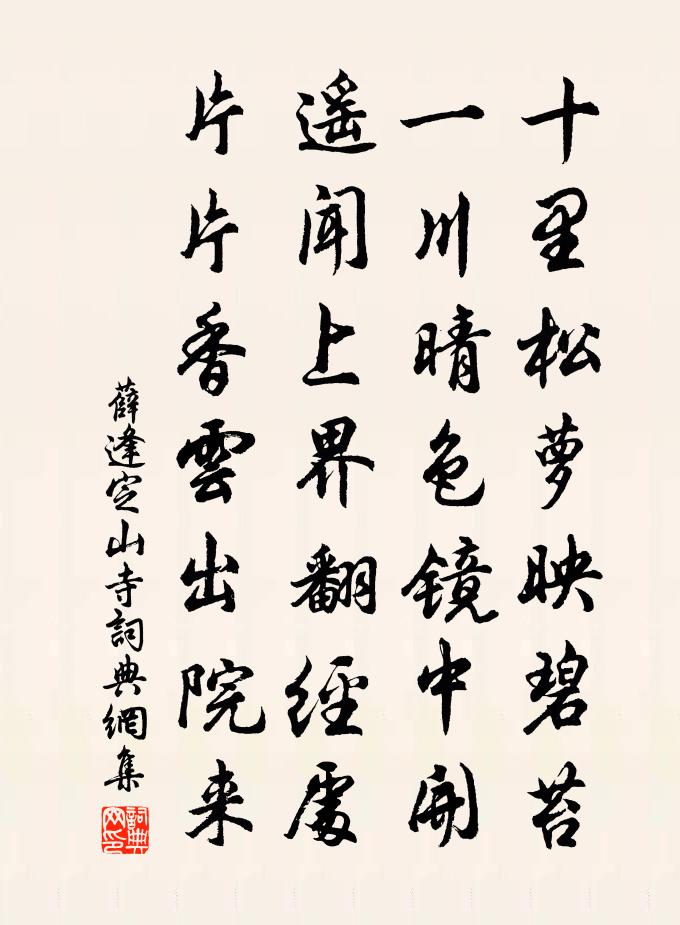 十里松萝映碧苔
一川晴色镜中開
遥闻上界翻經處
片片香雲出院来
薛逢定山寺詞典網集
詞典网印